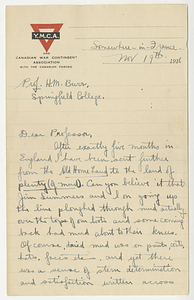 Y.M.C.A.
CANADIAN WAR CONTINGENT
ASSOCIATION
WITH THE CANADIAN FORCES
Somewhere-in-France
Nov 19th 1916
Prof. H.M. Burr,
Springfield College.
Dear Professor,
After exactly five months in
England I have been sent further
from the Old Home Land to the land of
plenty (of mud). Can you believe it that
Jim Summers and I on going up
the line ploughed through mud actually
over the tops of our boots and some coming
back had mud about to their knees.
Of course said mud was on pants, coats,
hats, faces etc. and yet there
was a sense of stern determination
and satisfaction written across